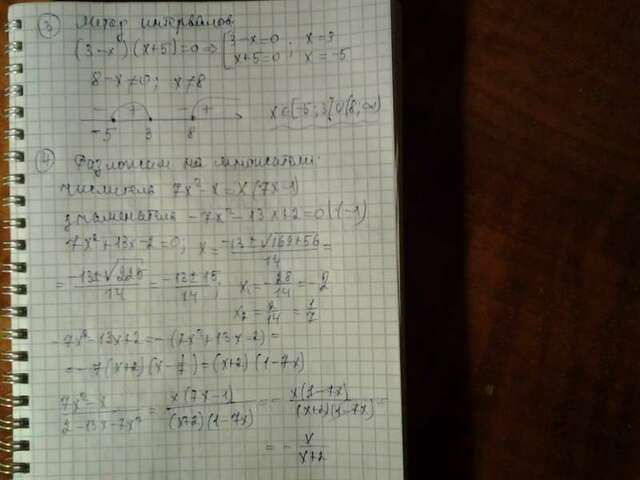 ③ Метод интервалов
(3-x)(x+5)=0 ⇒ [3-x=0; x=3
x+5=0 x=-5
8-x≠0; x≠8
- + - +
-5 3 8
x∈[-5;3]∪(8;∞)
④ Разложим на множители:
числитель 7x²-x=x(7x-1)
знаменатель -7x²-13x+2=0|·(-1)
7x²+13x-2=0; x=(-13±√(169+56))/14=
=(-13±√225)/14=(-13±15)/14; x₁=-28/14=-2
x₂=2/14=1/7
-7x²-13x+2=-(7x²+13x-2)=
=-7(x+2)(x-1/7)=(x+2)(1-7x)
(7x²-x)/(2-13x-7x²)=x(7x-1)/((x+2)(1-7x))=-x(1-7x)/((x+2)(1-7x))=
=-x/(x+2)